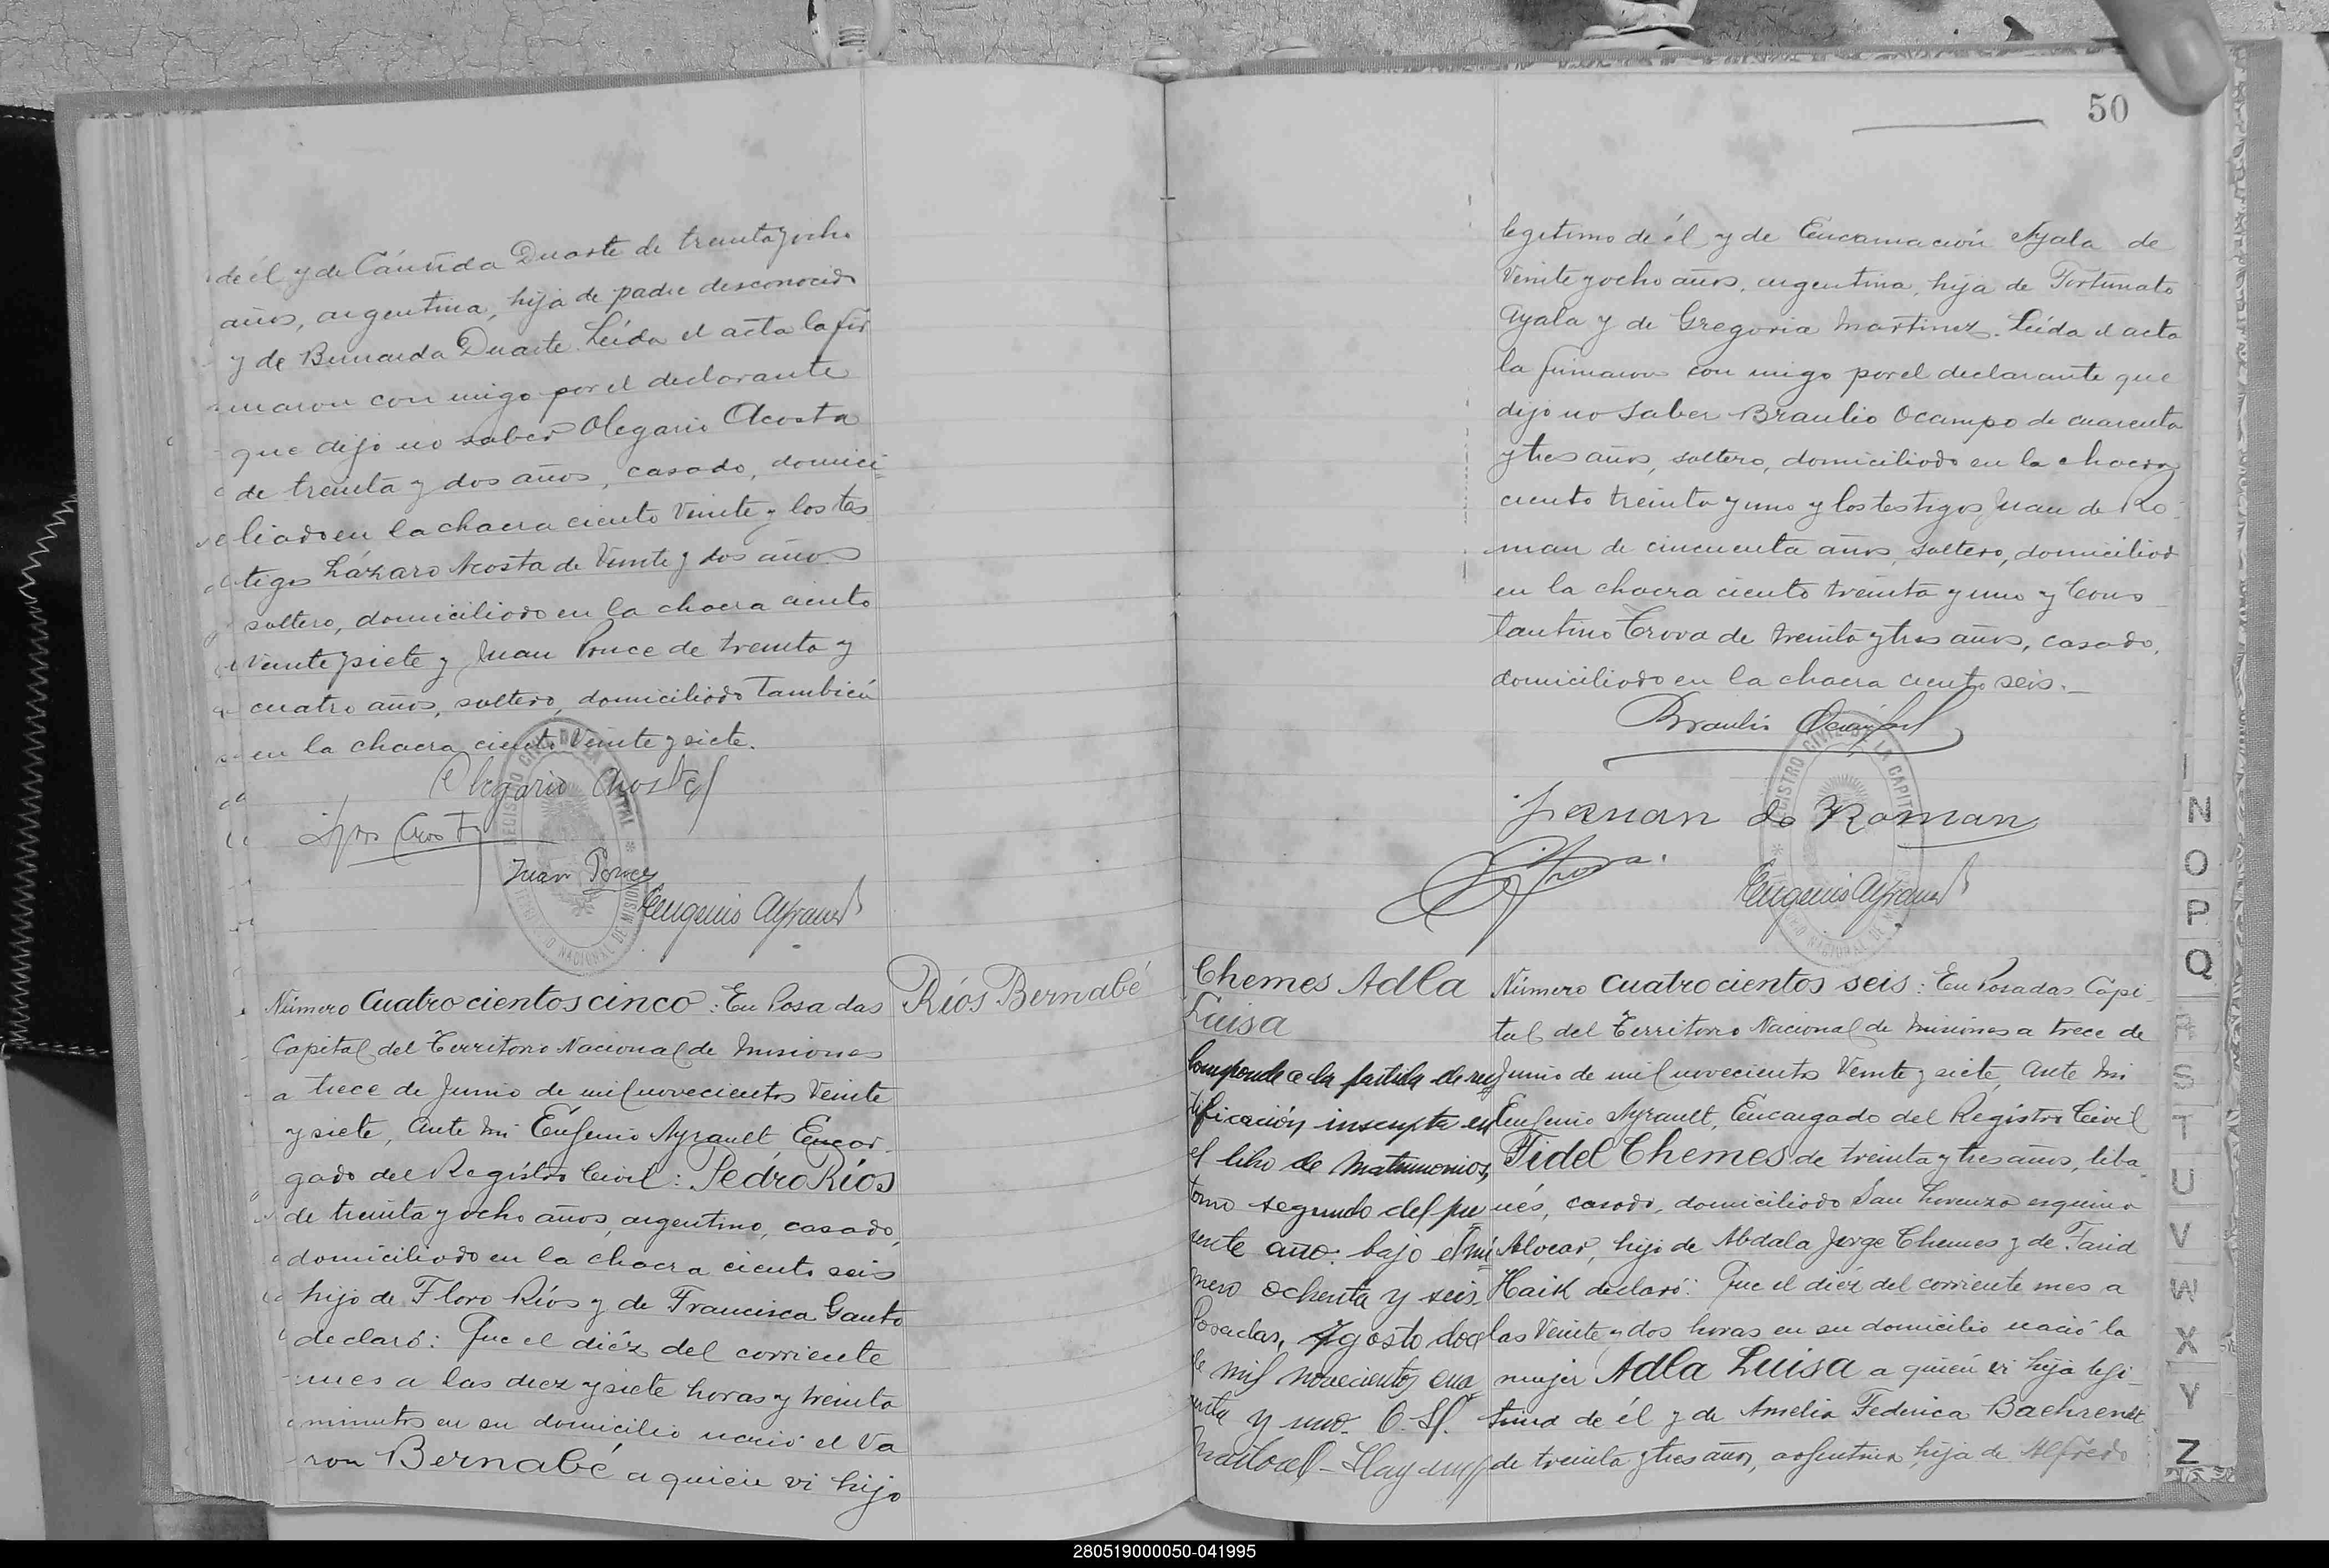 de él y de Cándida Duarte de treinta y ocho
años, argentina, hija de padre desconocido
y de Bernarda Duarte. Leída el acta la fir
maron con migo por el declarante
que dijo no saber Olegario Acosta
de treinta y dos años, casado, domici=
liado en la chacra ciento veinte y los tes
tigos Lázaro Acosta de veinte y dos años
soltero, domiciliado en la chacra ciento
veinte y siete y Juan Ponce de treinta y
cuatro años, soltero, domiciliado también
en la chacra ciento veinte y siete.
Olegario Acosta
Juan Ponce
Eugenio Ayrault
REGISTRO CIVIL DE LA CAPITAL
TERRITORIO NACIONAL DE MISIONES
Número Cuatrocientos cinco: En Posadas
Capital del Territorio Nacional de Misiones
a trece de Junio de mil novecientos veinte
y siete, ante mi Eugenio Ayrault Encar
gado del Registro Civil: Pedro Ríos
de treinta y ocho años, argentino, casado,
domiciliado en la chacra ciento seis
hijo de Floro Ríos y de Francisca Gauto
declaró: Que el diéz del corriente
mes a las diez y siete horas y treinta
minutos en su domicilio nació el va
ron Bernabé a quien vi hijo
Ríos Bernabé
50
legitimo de él y de Encarnación Ayala de
veinte y ocho años, argentina, hija de Fortunato
Ayala y de Gregoria Martinez. Leída el acta
la firmaron con migo por el declarante que
dijo no saber Braulio Ocampo de cuarenta
y tres años, soltero, domiciliado en la chacra
ciento treinta y uno y los testigos Juan de Ro
man de cincuenta años, soltero, domiciliado
en la chacra ciento treinta y uno y Cons
tantino Trova de treinta y tres años, casado,
domiciliado en la chacra ciento seis.
Braulio Ocampo
Juan de Roman
Eugenio Ayrault
REGISTRO CIVIL DE LA CAPITAL
TERRITORIO NACIONAL DE MISIONES
Chemes Adla
Luisa
Corresponde a la partida de rec
tificación inscripta en
el libro de Matrimonios,
tomo segundo del pre
sente año: bajo el nú
mero ochenta y seis.
Posadas, Agosto doce
de mil novecientos cua
renta y uno.
Número cuatrocientos seis: En Posadas Capi
tal del Territorio Nacional de Misiones a trece de
Junio de mil novecientos veinte y siete, ante mi
Eugenio Ayrault, Encargado del Registro Civil
Fidel Chemes de treinta y tres años, liba
nés, casado, domiciliado San Lorenzo esquina
Alvear, hijo de Abdala Jorge Chemes y de Farid
Haik declaró: Que el diéz del corriente mes a
las veinte y dos horas en su domicilio nació la
mujer Adla Luisa a quien vi hija legi
tima de él y de Amelia Federica Baehrendt
de treinta y tres años, argentina, hija de Alfredo
N
O
P
Q
R
S
T
U
V
W
X
Y
Z
280519000050-041995